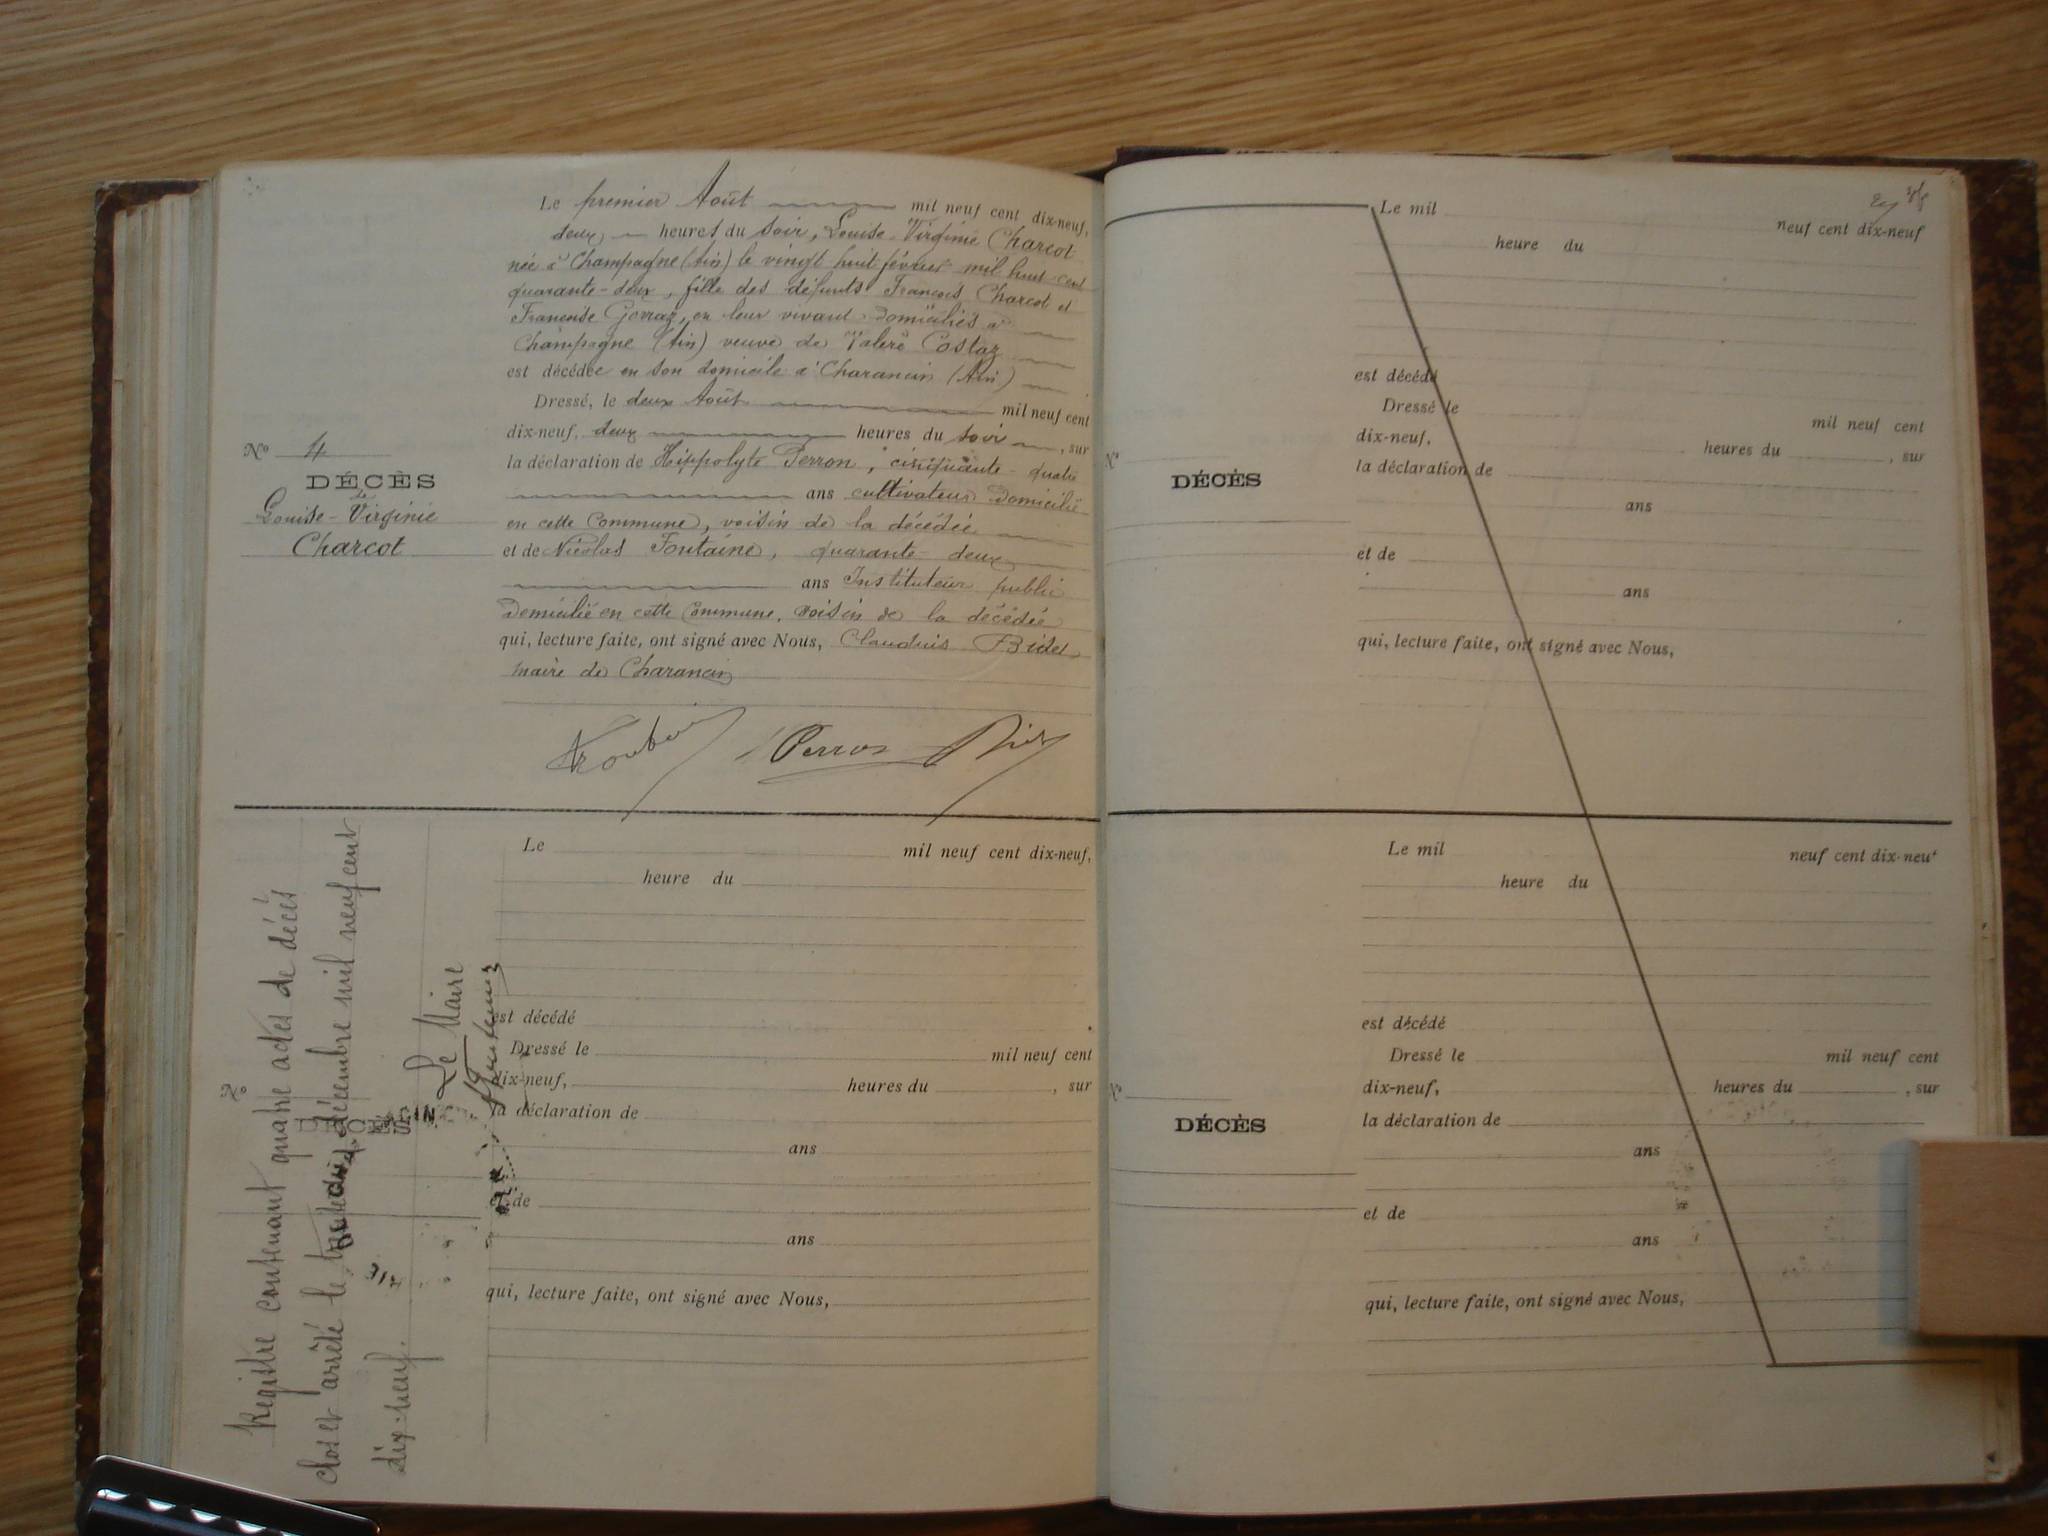 Le premier Août mil neuf cent dix-neuf,
deux heures du soir, Louise-Virginie Charcot
née à Champagne (Ain) le vingt huit février mil huit cent
quarante-deux, fille des défunts François Charcot et
Françoise Gorraz, en leur vivant domiciliés à
Champagne (Ain) veuve de Valère Costaz
est décédée en son domicile à Charancin (Ain)
Dressé, le deux Août mil neuf cent
dix-neuf, deux heures du soir, sur
la déclaration de Hippolyte Perron, cinquante-quatre
ans cultivateur domicilié
en cette Commune, voisin de la décédée
et de Nicolas Fontaine, quarante-deux
ans Instituteur public
domicilié en cette Commune, voisin de la décédée
qui, lecture faite, ont signé avec Nous, Claudius Bidet
maire de Charancin
Perron
Nº 4
DÉCÈS
de
Louise-Virginie
Charcot
Le mil neuf cent dix-neuf,
heure du
est décédé
Dressé le mil neuf cent
dix-neuf, heures du , sur
la déclaration de
ans
et de
ans
qui, lecture faite, ont signé avec Nous,
Nº
DÉCÈS
Registre contenant quatre actes de décès
clos et arrêté le décembre mil neuf cent
dix-neuf.
Le Maire
Le mil neuf cent dix-neuf
heure du
est décédé
Dressé le mil neuf cent
dix-neuf, heures du , sur
la déclaration de
ans
et de
ans
qui, lecture faite, ont signé avec Nous,
Nº
DÉCÈS
Le mil neuf cent dix-neuf
heure du
est décédé
Dressé le mil neuf cent
dix-neuf, heures du , sur
la déclaration de
ans
et de
ans
qui, lecture faite, ont signé avec Nous,
Nº
DÉCÈS